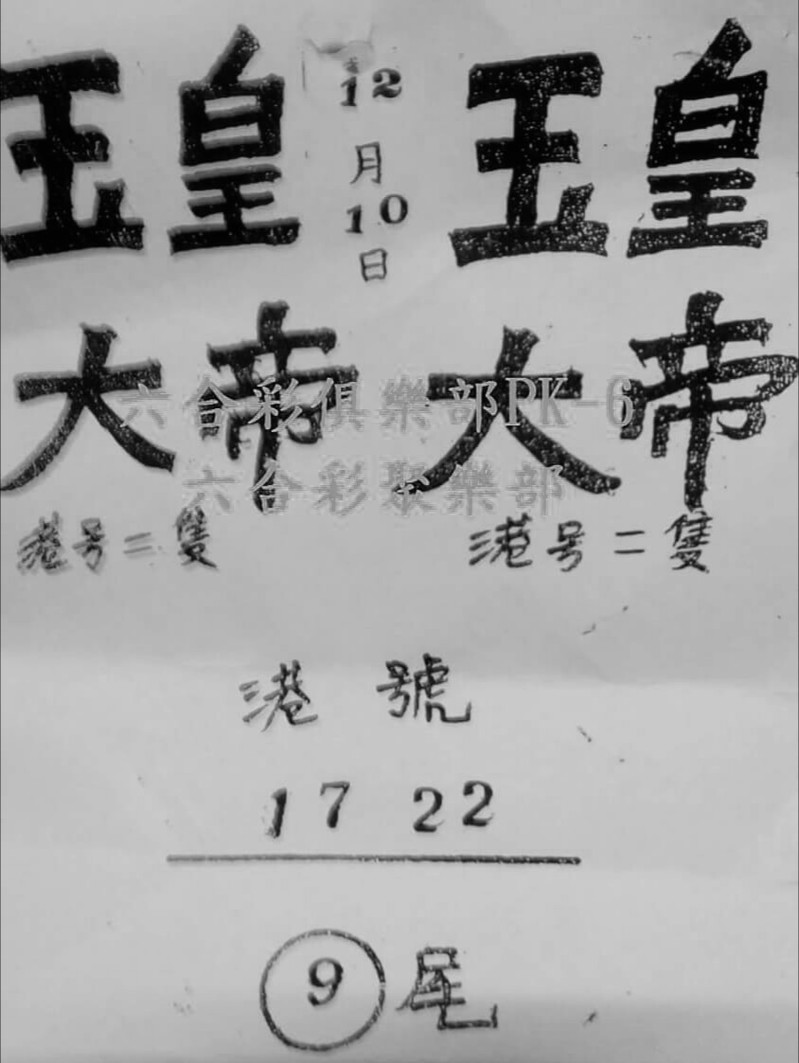 玉皇 12月10日 玉皇
大帝 大帝
六合彩俱樂部PK-6
六合彩聚樂部
港号二隻 港号二隻
港號
17 22
9尾